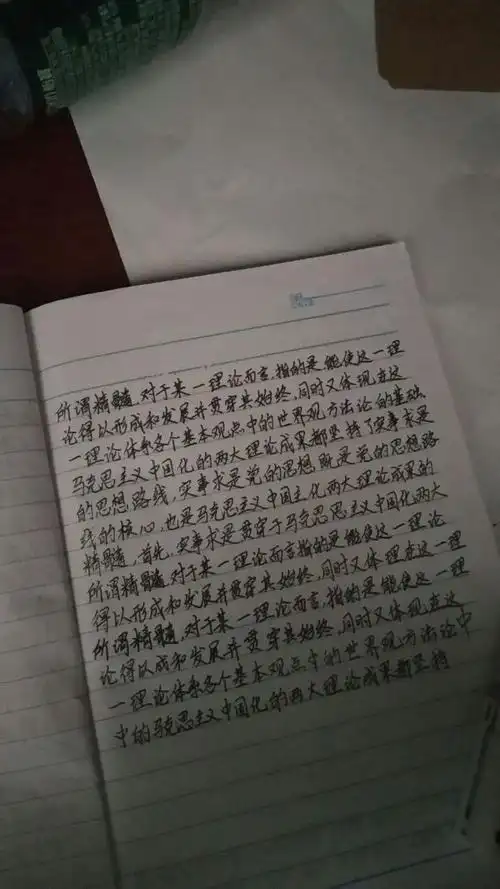 所谓精髓,对于某一理论而言,指的是能使这一理
论得以形成和发展并贯穿其始终,同时又体现在这
一理论体系各个基本观点中的世界观方法论的基础.
马克思主义中国化的两大理论成果都坚持了实事求是
的思想路线,实事求是党的思想,既是党的思想路
线的核心,也是马克思主义中国主化两大理论成果的
精髓,首先,实事求是贯穿于马克思思主义中国化两大
所谓精髓,对于某一理论而言指的是能使这一理论
得以形成和发展并贯穿其始终,同时又体理在这一理
所谓精髓,对于某一理论而言,指的是能使这一理
论得以成和发展并贯穿其始终,同时又体现在这
一理论体系各个基本观点中的世界观方法论中
中的马克思主义中国化的两大理论成果都坚持